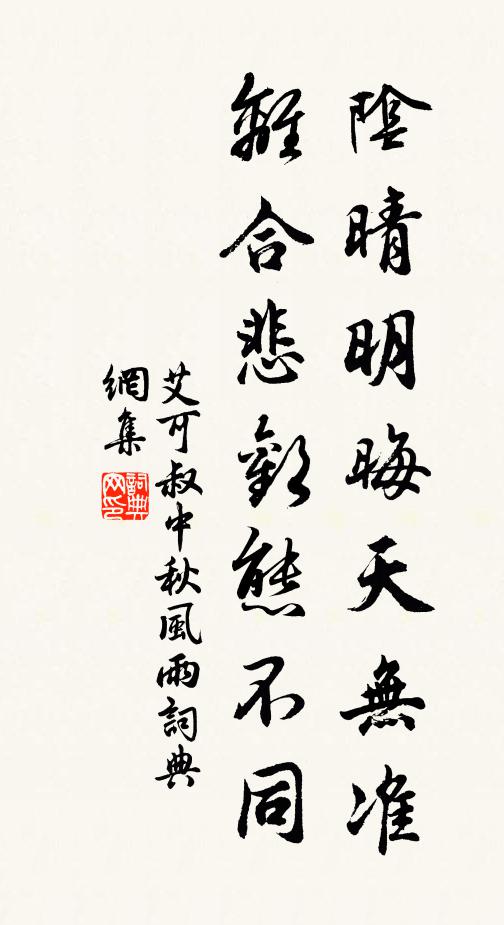 陰晴明晦天無准
離合悲歡態不同
艾可叔中秋風雨詞典
網集
詞典
网印